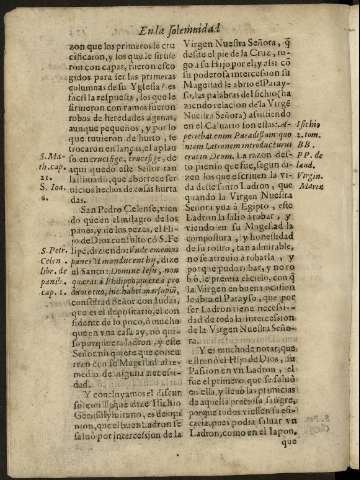 En la solemnidad
zon que los primeros le cru
cificaron, y los que le siruie
ron con capas, fueron esco
gidos para ser las primeras
columnas de su Yglesia? es
facil la respuesta, los que le
siruieron con ramos fueron
robos de heredades agenas,
aunque pequeños, y por lo
que tuuieron de hurto, se
trocaron en lanças, el aplau
so en crucifige, crucifige, de
aqui quedo este Señor tan
lastimado, que aborrece ser
uicios hechos de cosas hurta
das.
San Pedro Celense, vien
do que en el milagro de los
panes, y de los pezes, el Hi-
jo de Dios consultò cō S. Fe
lipe, diziendo: Vnde ememus
panes vt manducent hi, dize
el Santo: Domine Iesu, non
quæras à Philippo, quære à pro
ditore tuo, hic habet marsupiū,
consultad Señor con Iudas,
que es el depositario, el con
fidente de lo poco, ò mucho
que en vna casa ay, no qui-
so porque era ladron, y este
Señor ni quiere que conser
uen con su Magestad al re-
medio de alguna necesi-
dad.
Y concluyamos el discur
so con lo que dize Ysichio
Gerosolymitano, es de opi
nion, que el buen Ladron se
saluò por intercesion de la
S. Ma-
th. cap.
21.
S. Ioa.
6.
S. Petr.
Celen.
libr. de
panib.
cap. 1.
Virgen Nuestra Señora, q̄
desde el pie de la Cruz, ro-
go à su Hijo por el, y assi cō
su poderosa intercession su
Magestad le abrio el Paray-
so, las palabras de Isichio (ha
ziendo relacion de la Virgē
Nuestra Señora) assistiendo
en el Caluario son estas:
aperiebat enim Paradisum quo
niam Latronem introductura
erat in Deum. La razon des-
to pienso que fue, segun di-
zen los que escriuen la vi-
da deste santo Ladron, que
quando la Virgen Nuestra
Señora yua à Egipto, este
Ladron la salio à robar, y
viendo en su Magestad la
compostura, y honestidad
de su rostro, tan admirable,
no se atreuio à robarla, y
por que pudo robar, y no ro
bò, le premia el cielo, con q̄
la Virgen en buena ocasion
le abra el Parayso, que por
ser Ladron tiene necessi-
dad de toda la intercession
de la Virgen Nuestra Seño-
ra.
Y es mucho de notar, que
el fin del Hijo de Dios, su
Passion en vn Ladron, el
fue el primero que se saluò
en ella, y lleuò las primicias
de aquella preciosa sangre,
porque todos viessen su efi-
cacia, pues podia saluar vn
Ladron, como en el Iapon,
que
Isichio
2. tom.
BB.
PP. de
laud.
Virgin.
Mariæ